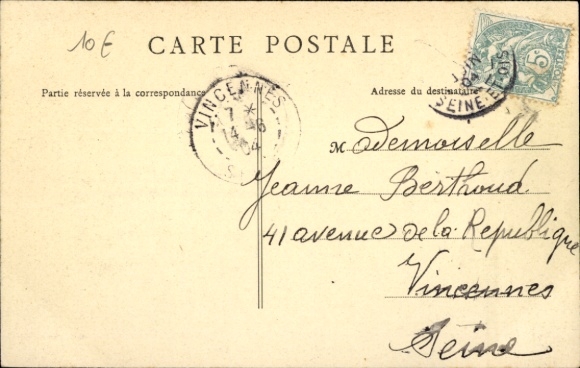 10€
CARTE POSTALE
Partie réservée à la correspondance
Adresse du destinataire
VINCENNES
7 *
14 -6
04
5
SEINE
Mademoiselle
Jeanne Berthoud
41 avenue de la République
Vincennes
Seine